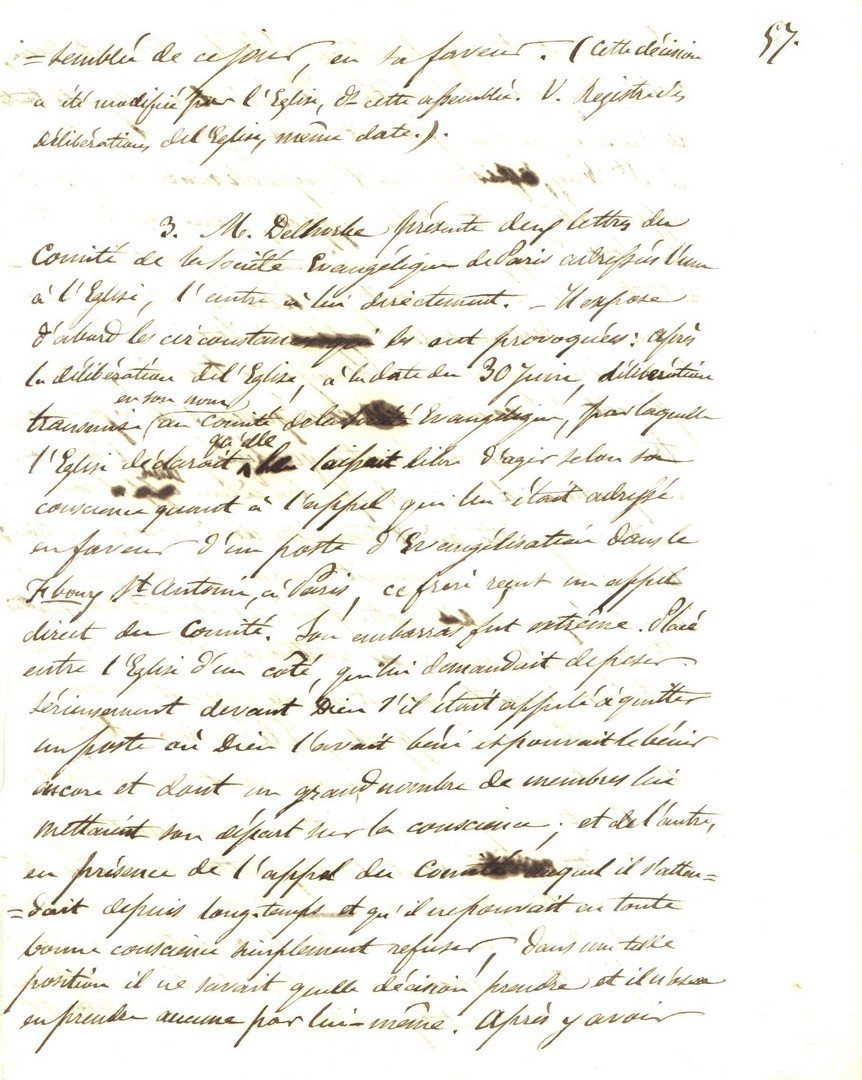 57.
=semblée de ce jour, en sa faveur. (Cette décision
a été modifiée par l'Eglise, ds cette assemblée. V. Registre des
délibérations de l'Eglise, même date.).
3. M. Delhorbe présente deux lettres du
Comité de la Société Evangélique de Paris adressées l'une
à l'Eglise, l'autre à lui directement. – Il expose
d'abord les circonstances qui les ont provoquées: après
la délibération de l'Eglise, à la date du 30 Juin, délibération
en son nom
transmise au comité de la Société Evangélique, par laquelle
qu'elle
l'Eglise déclarait le laissait libre d'agir selon sa
conscience quant à l'appel qui lui était adressé
en faveur d'un poste d'Evangélisation dans le
Fbourg St Antoine, à Paris, ce frère reçut un appel
direct du Comité. Son embarras fut extrême. Placé
entre l'Eglise d'un côté, qui lui demandait de peser
sérieusement devant Dieu s'il était appelé à quitter
un poste où Dieu l'avait béni et pouvait le bénir
encore et dont un grand nombre de membres lui
mettaient son départ sur la conscience; et de l'autre,
en présence de l'appel du Comité auquel il s'atten=
=dait depuis long-temps et qu'il ne pouvait en toute
bonne conscience simplement refuser, dans une telle
position il ne savait quelle décision prendre et il n'osa
en prendre aucune par lui-même. Après y avoir